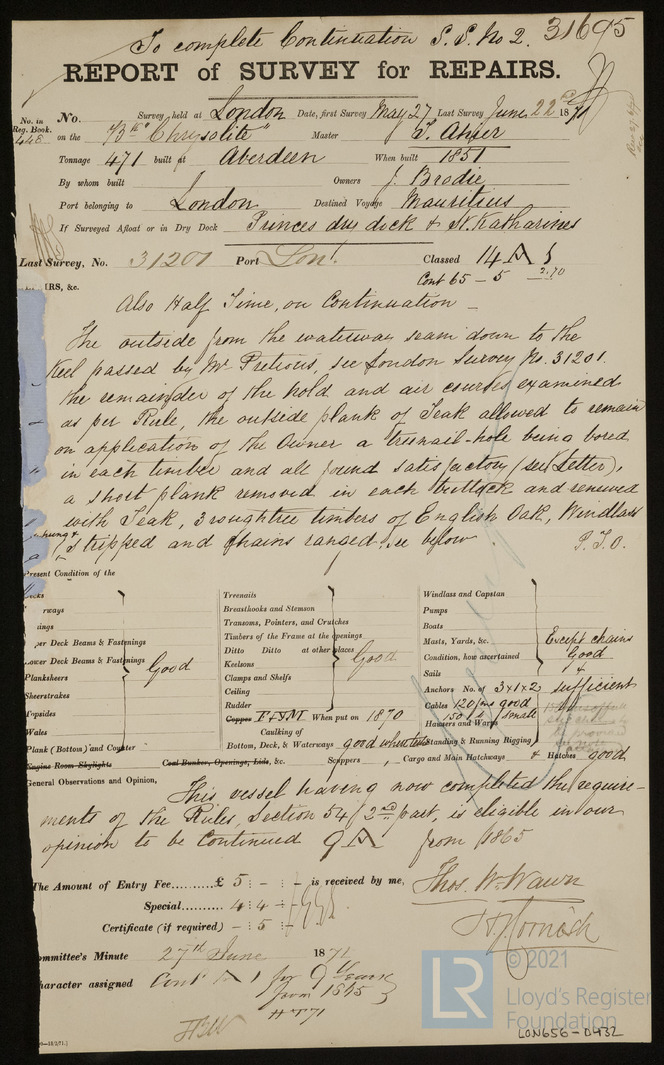 To complete Continuation S.S. No 2. 31695
REPORT of SURVEY for REPAIRS.
No. in Reg. Book. 448 No. Survey held at London Date, first Survey May 27 Last Survey June 22nd 1871
on the Bk "Chrysolite" Master
Tonnage 471 built at Aberdeen When built 1851
By whom built Owners J. Brodie
Port belonging to London Destined Voyage Mauritius
If Surveyed Afloat or in Dry Dock Princes dry dock & St. Katharines
Last Survey, No. 31201 Port Lon. Classed 14 A 1
Cont 65 - 5 2.70
IRS, &c.
Also Half Time, on Continuation -
The outside from the waterway seam down to the
Keel passed by Mr Pretious, see London Survey No. 31201.
the remainder of the hold and air courses examined
as per Rule, the outside plank of Teak allowed to remain
on application of the Owner a treenail-hole being bored
in each timber and all found satisfactory (see Letter),
a short plank removed in each buttock and renewed
with Teak, 3 roughtree timbers of English Oak, Windlass
stripped and chains ranged, see below P.T.O.
Present Condition of the
Decks
rways
ings
per Deck Beams & Fastenings
Lower Deck Beams & Fastenings Good
Planksheers
Sheerstrakes
Topsides
Wales
Plank (Bottom) and Counter
Engine Room Skylights
Treenails
Breasthooks and Stemson
Transoms, Pointers, and Crutches
Timbers of the Frame at the openings
Ditto Ditto at other places Good
Keelsons
Clamps and Shelfs
Ceiling
Rudder
Copper F & YM When put on 1870
Caulking of
Bottom, Deck, & Waterways good where seen
Coal Bunker, Openings, Lids, &c. Scuppers, Cargo and Main Hatchways & Hatches good
Windlass and Capstan
Pumps
Boats
Masts, Yards, &c. Except chains
Condition, how ascertained Good
Sails &
Anchors No. of 3 x 1 x 2 sufficient
Cables 120 fms good
150 fs small
Hawsers and Warps
Standing & Running Rigging
General Observations and Opinion,
This vessel having now completed the require-
ments of the Rules, Section 54 / 2nd part, is eligible in our
opinion to be continued 9 A from 1865
The Amount of Entry Fee......... £ 5 : - : - is received by me, Thos. W. Wawn
Special......... 4 : 4 : -
Certificate (if required) - : 5 : - H. J. Cornish
Committee's Minute 27th June 1871
Character assigned Cont A 1 for 9 Years
from 1865
© 2021
LR
Lloyd's Register
Foundation
LON656-0432